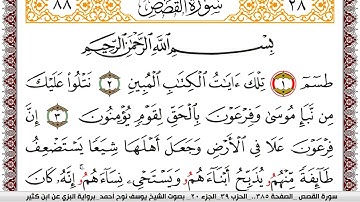 ٢٨ سُورَةُ القَصَصِ ٨٨
بِسْمِ اللَّهِ الرَّحْمَٰنِ الرَّحِيمِ
طسٓمٓ ١ تِلْكَ ءَايَٰتُ الْكِتَٰبِ الْمُبِينِ ٢ نَتْلُوا۟ عَلَيْكَ
مِن نَّبَإِ مُوسَىٰ وَفِرْعَوْنَ بِالْحَقِّ لِقَوْمٍ يُؤْمِنُونَ ٣ إِنَّ
فِرْعَوْنَ عَلَا فِي الْأَرْضِ وَجَعَلَ أَهْلَهَا شِيَعًا يَسْتَضْعِفُ
طَآئِفَةً مِّنْهُمُۥ يُذَبِّحُ أَبْنَآءَهُمُۥ وَيَسْتَحْيِۦ نِسَآءَهُمُۥٓ إِنَّهُۥ كَانَ
سورة القصص الصفحة ٣٨٥.. الحزب ٣٩ الجزء ٢٠ بصوت الشيخ يوسف نوح أحمد برواية البزي عن ابن كثير